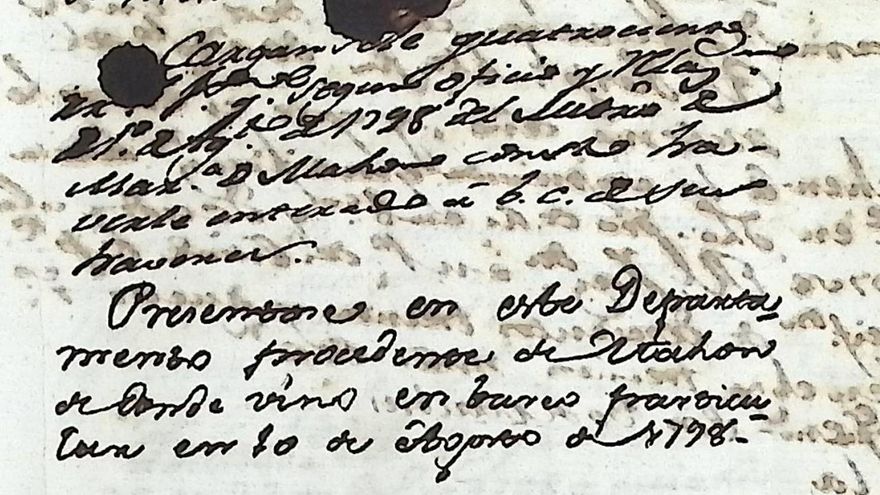 Carganse le quatrocientos
segun oficio y Mag.
de Ag.to de 1798 del Mitro de
Mar.a de Mahon consta ha-
verle enterado á b. c. de sus
haveres.
Presentose en este Departa-
mento procedente de Mahon
de donde vino en barco particu-
lar en 10 de Agosto de 1798-